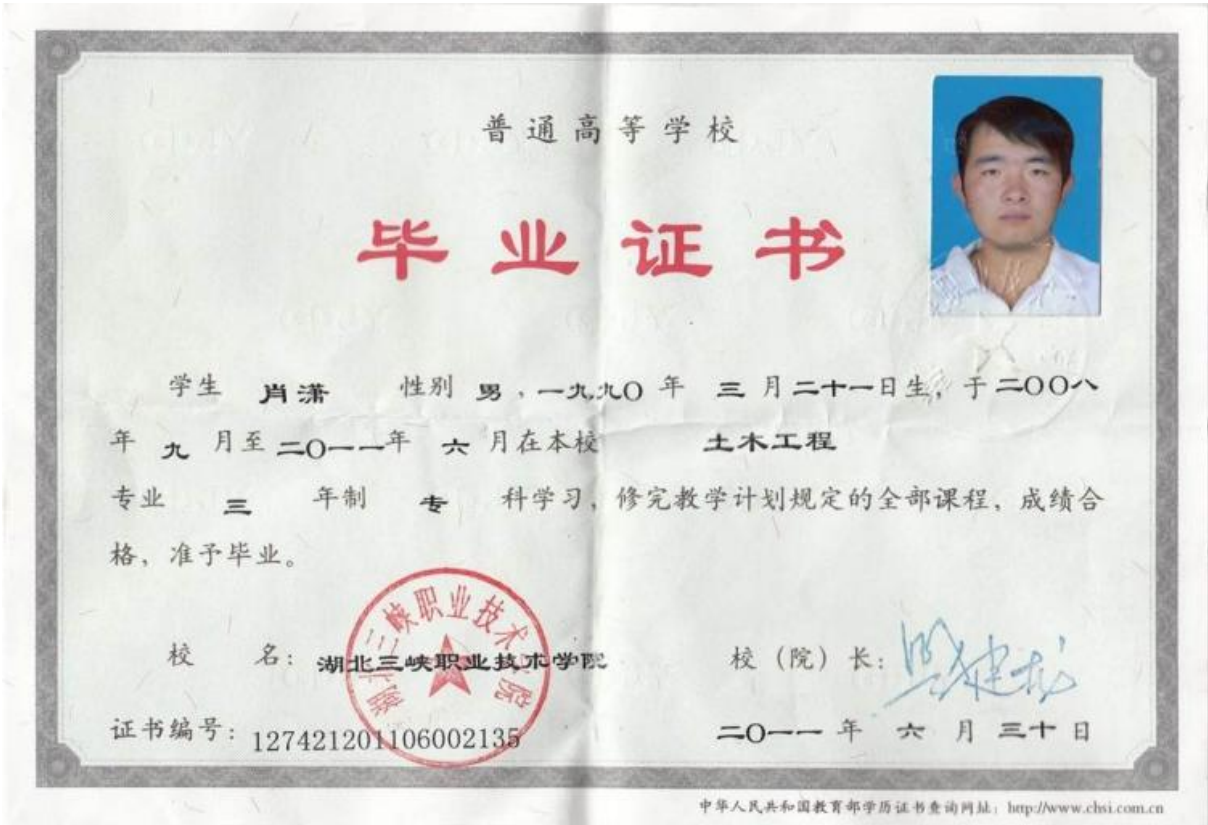 普通高等学校
毕业证书
学生 肖潇 性别 男，一九九〇年 三月二十一日生，于二〇〇八
年 九 月至二〇一一年 六 月在本校 土木工程
专业 三 年制 专 科学习，修完教学计划规定的全部课程，成绩合
格，准予毕业。
湖北三峡职业技术学院
校 名：湖北三峡职业技术学院 校（院）长：
证书编号：127421201106002135 二〇一一年 六 月 三十日
中华人民共和国教育部学历证书查询网址：http://www.chsi.com.cn